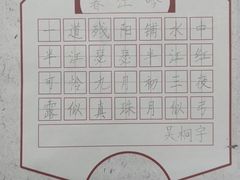 一道残阳铺水中
半江瑟瑟半江红
可怜九月初三夜
露似真珠月似弓
吴桐宇